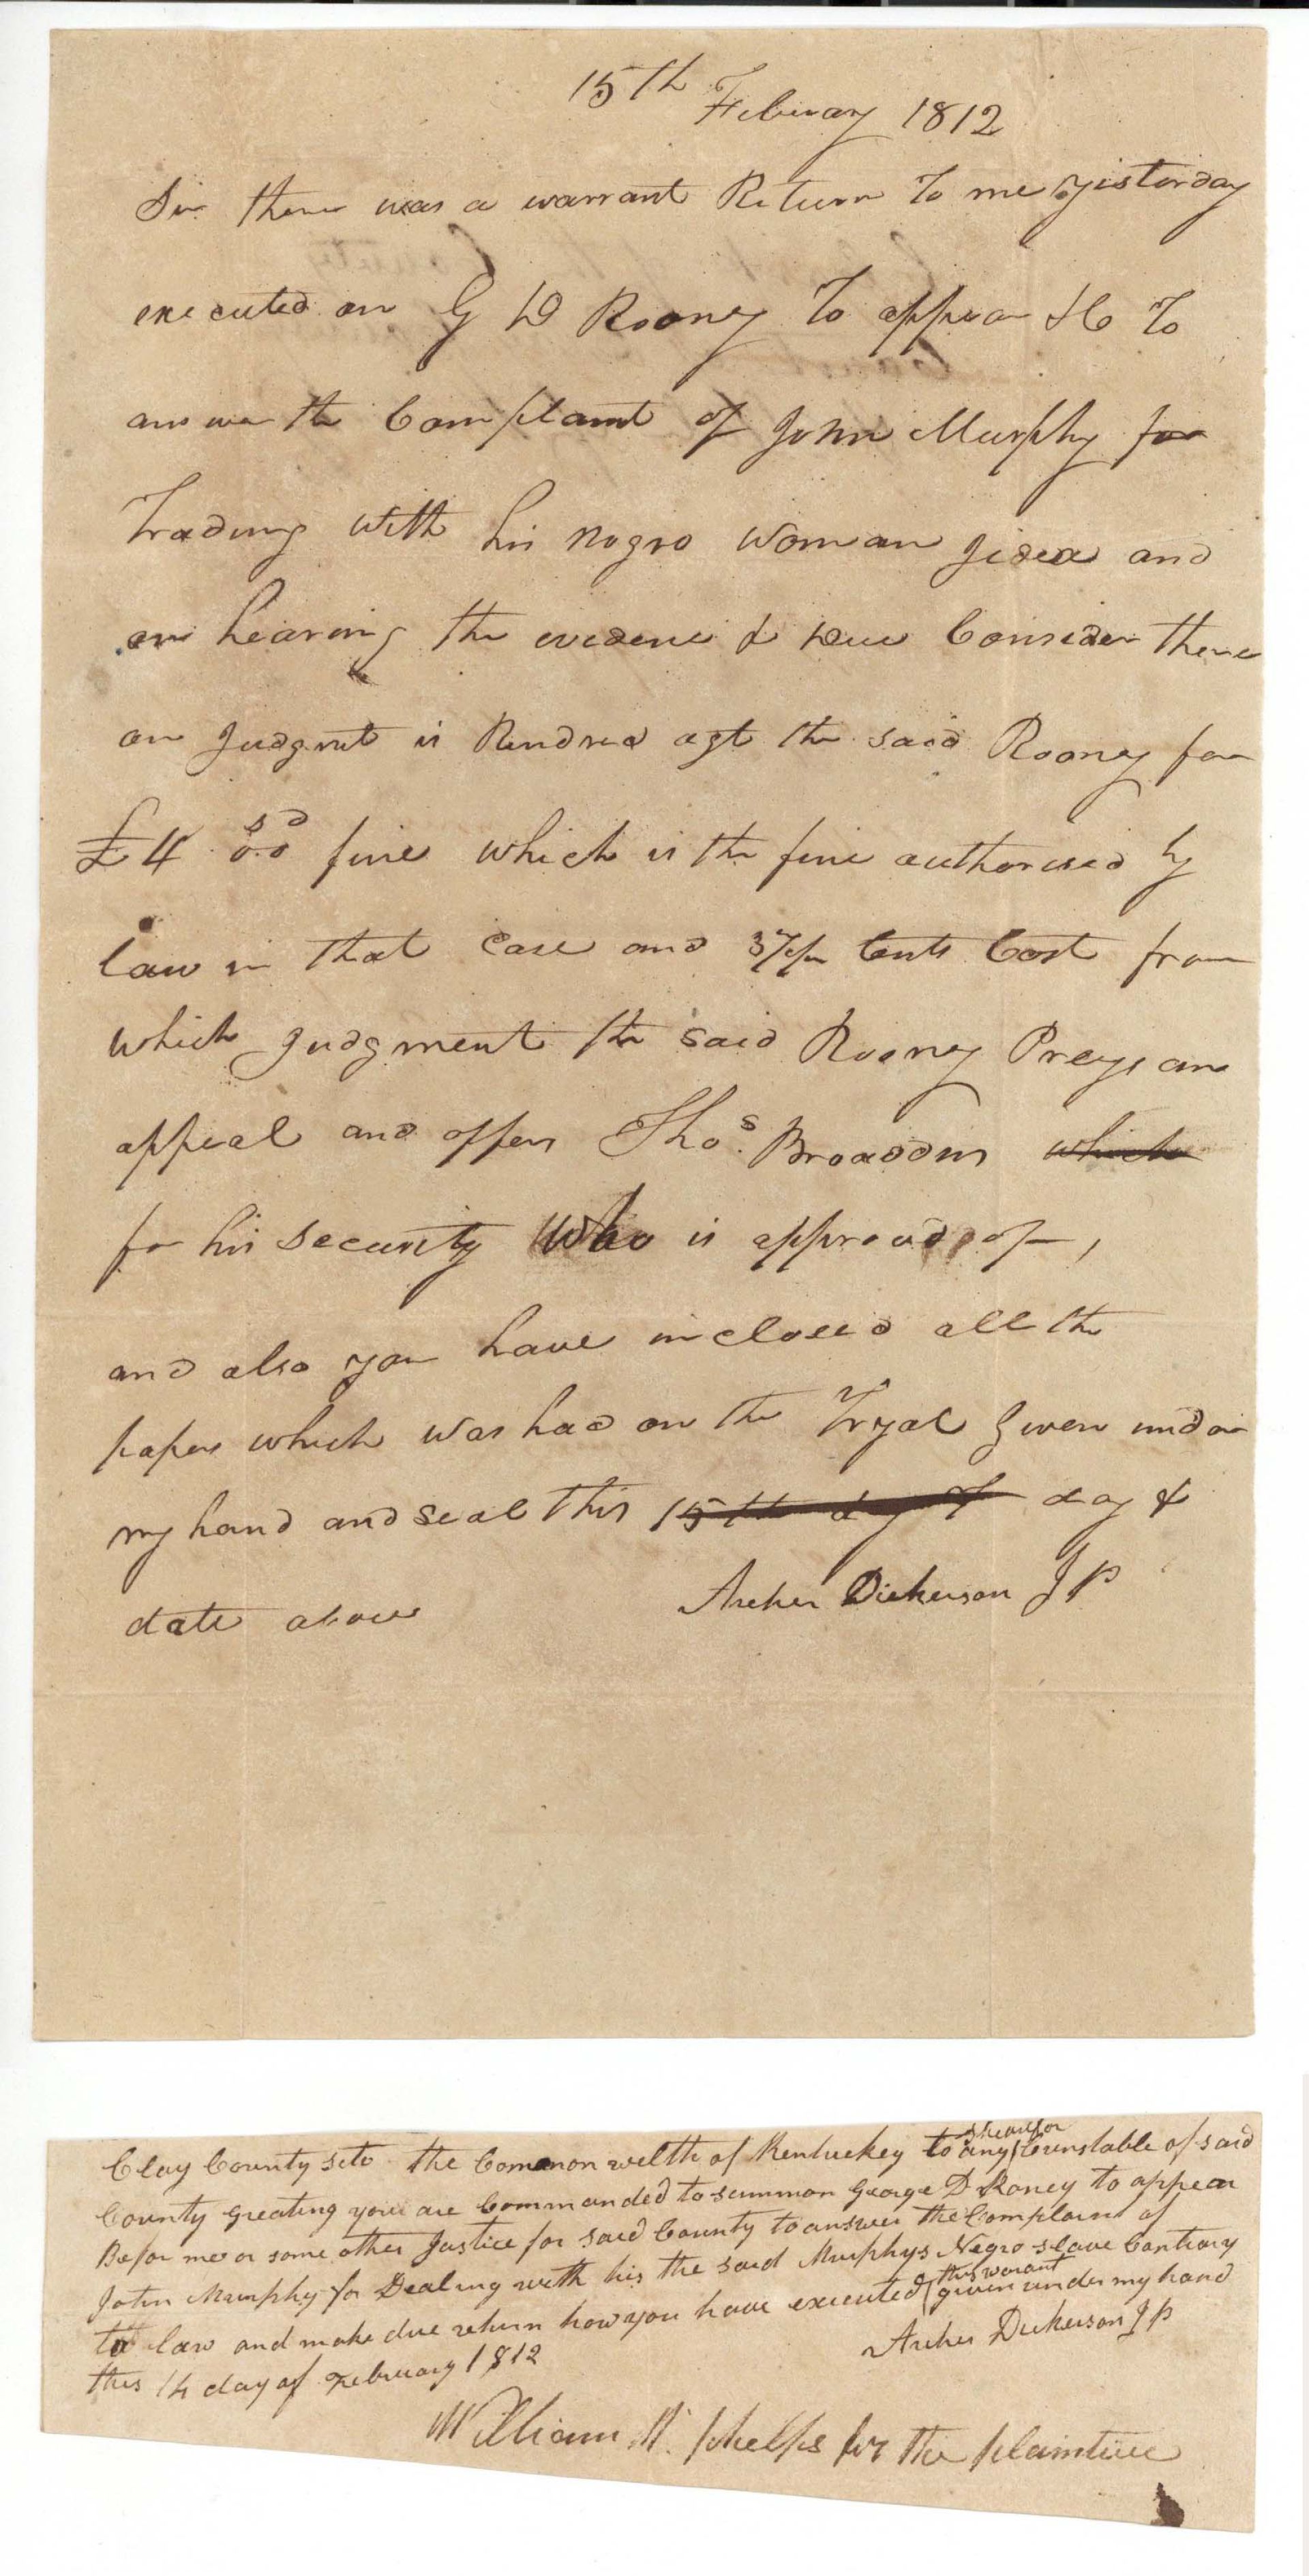 15th February 1812
Sir there was a warrant Return To me yisterday
executed on G D Roney To appear &c To
answer the Complaint of John Murphy for
Trading with his negro woman and
on hearing the evidence & due Consider there
on Judgmt is Rendred agt the said Roney for
£4 s0. d0 fine which is the fine authorised by
law in that Case and 37½ Cents Cost from
which Judgment the said Roney Prays an
appeal and offers Thos. Broaddus which
for his security who is approved of,
and also you have inclosed all the
papers which was had on the Tryal Given under
my hand and seal this 15th day of day &
date above Archer Dickerson J P
Clay County Sct. the Common welth of Kentuckey to any sheriff or Cunstable of said
County Greating you are Commanded to summon George D Roney to appear
Befor me or some other Justice for said County to answer the Complaint of
John Murphy for Dealing with his the said Murphys Negro slave Contrary
to law and make due return how you have executed this warant given under my hand
this 14 day of February 1812 Archer Dickerson J P
William N. phelps for the plaintiee